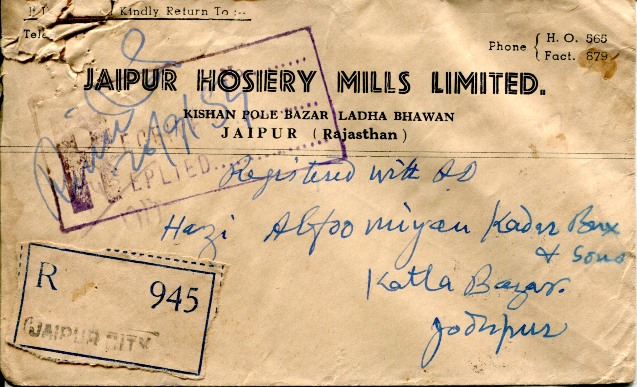 Kindly Return To :—
Phone { H. O. 565
Fact. 879
JAIPUR HOSIERY MILLS LIMITED.
KISHAN POLE BAZAR LADHA BHAWAN
JAIPUR (Rajasthan)
Registered with AD
Hazi Kader Bux
& Sons
Katla Bazar.
Jodhpur
R 945
JAIPUR CITY